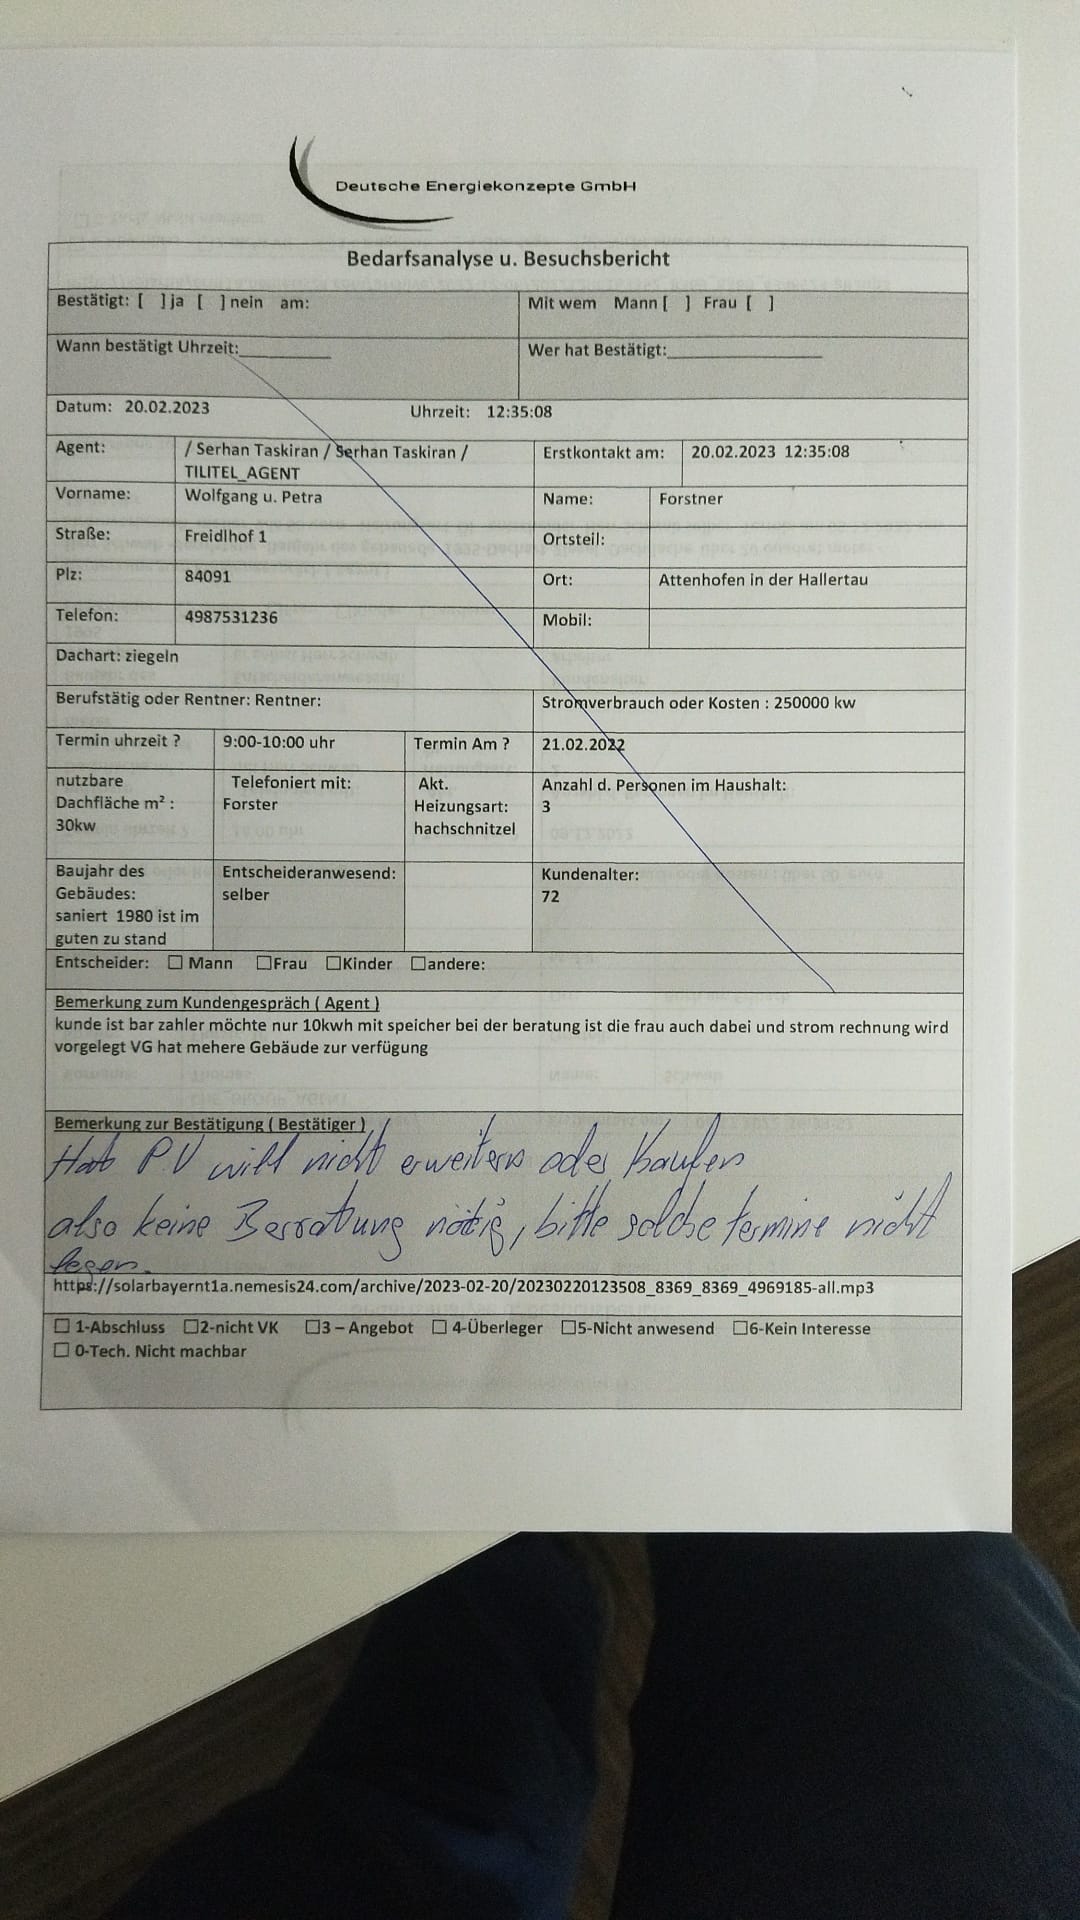 Deutsche Energiekonzepte GmbH
Bedarfsanalyse u. Besuchsbericht
Bestätigt: [ ] ja [ ] nein am:
Mit wem Mann [ ] Frau [ ]
Wann bestätigt Uhrzeit:__________
Wer hat Bestätigt:__________
Datum: 20.02.2023 Uhrzeit: 12:35:08
Agent: / Serhan Taskiran / Serhan Taskiran /
TILITEL_AGENT
Erstkontakt am: 20.02.2023 12:35:08
Vorname: Wolfgang u. Petra Name: Forstner
Straße: Freidlhof 1 Ortsteil:
Plz: 84091 Ort: Attenhofen in der Hallertau
Telefon: 4987531236 Mobil:
Dachart: ziegeln
Berufstätig oder Rentner: Rentner: Stromverbrauch oder Kosten : 250000 kw
Termin uhrzeit ? 9:00-10:00 uhr Termin Am ? 21.02.2022
nutzbare
Dachfläche m² :
30kw
Telefoniert mit:
Forster
Akt.
Heizungsart:
hachschnitzel
Anzahl d. Personen im Haushalt:
3
Baujahr des
Gebäudes:
saniert 1980 ist im
guten zu stand
Entscheideranwesend:
selber
Kundenalter:
72
Entscheider: ☐ Mann ☐Frau ☐Kinder ☐andere:
Bemerkung zum Kundengespräch ( Agent )
kunde ist bar zahler möchte nur 10kwh mit speicher bei der beratung ist die frau auch dabei und strom rechnung wird
vorgelegt VG hat mehere Gebäude zur verfügung
Bemerkung zur Bestätigung ( Bestätiger )
Hat PV will nicht erweitern oder Kaufen
also keine Berratung nötig, bitte solche termine nicht
legen.
https://solarbayernt1a.nemesis24.com/archive/2023-02-20/20230220123508_8369_8369_4969185-all.mp3
☐ 1-Abschluss ☐2-nicht VK ☐3 – Angebot ☐ 4-Überleger ☐5-Nicht anwesend ☐6-Kein Interesse
☐ 0-Tech. Nicht machbar